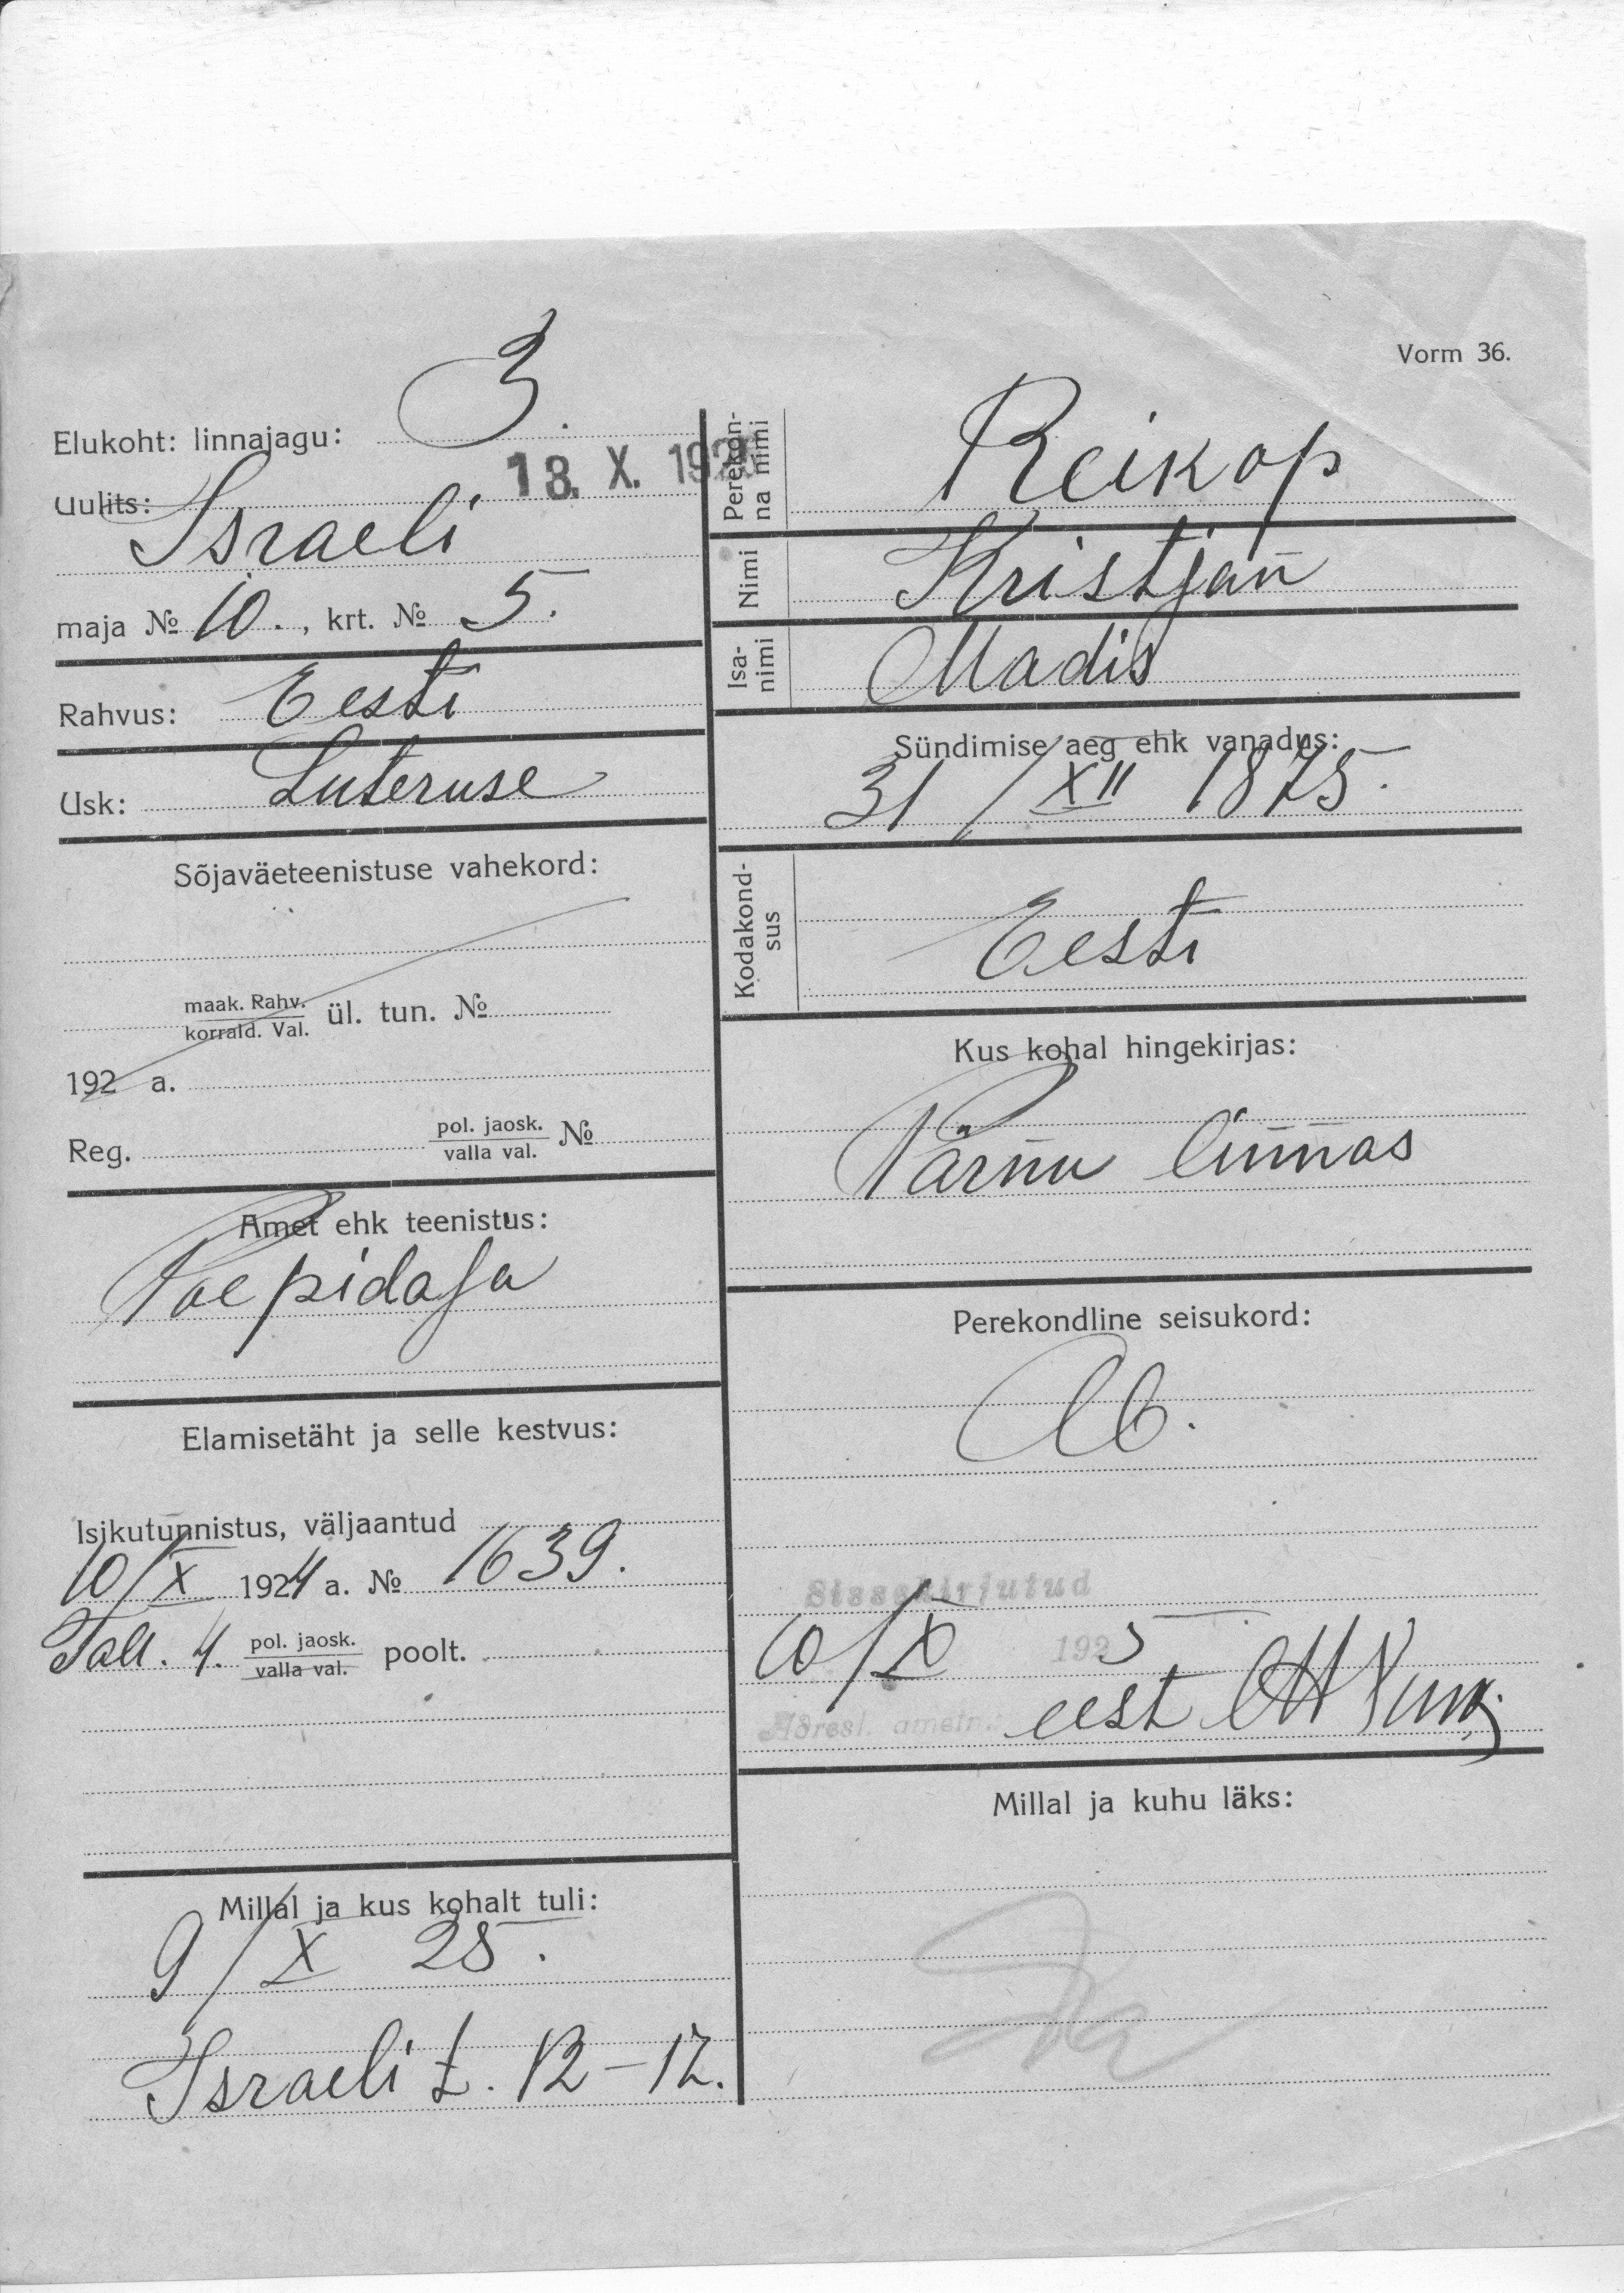 Vorm 36.
Elukoht: linnajagu: 3.
18. X. 192
Uulits:
Israeli
maja № 10., krt. № 5.
Rahvus: Eesti
Usk: Luteruse
Sõjaväeteenistuse vahekord:
maak. Rahv.
korrald. Val. ül. tun. №
192 a.
Reg. pol. jaosk. №
valla val.
Amet ehk teenistus:
Poepidaja
Elamisetäht ja selle kestvus:
Isikutunnistus, väljaantud
10/X 1924 a. № 1639.
Tall. 4. pol. jaosk. poolt.
valla val.
Millal ja kus kohalt tuli:
9/X 25.
Israeli t. 12-12.
Perekon-
na nimi
Reikop
Nimi
Kristjan
Isa-
nimi
Madis
Sündimise aeg ehk vanadus:
31/XII 1875.
Kodakond-
sus
Eesti
Kus kohal hingekirjas:
Pärnu linnas
Perekondline seisukord:
Ab.
Sissekirjutud
10/X 1925
Adresl. ametn.: eest
Millal ja kuhu läks: